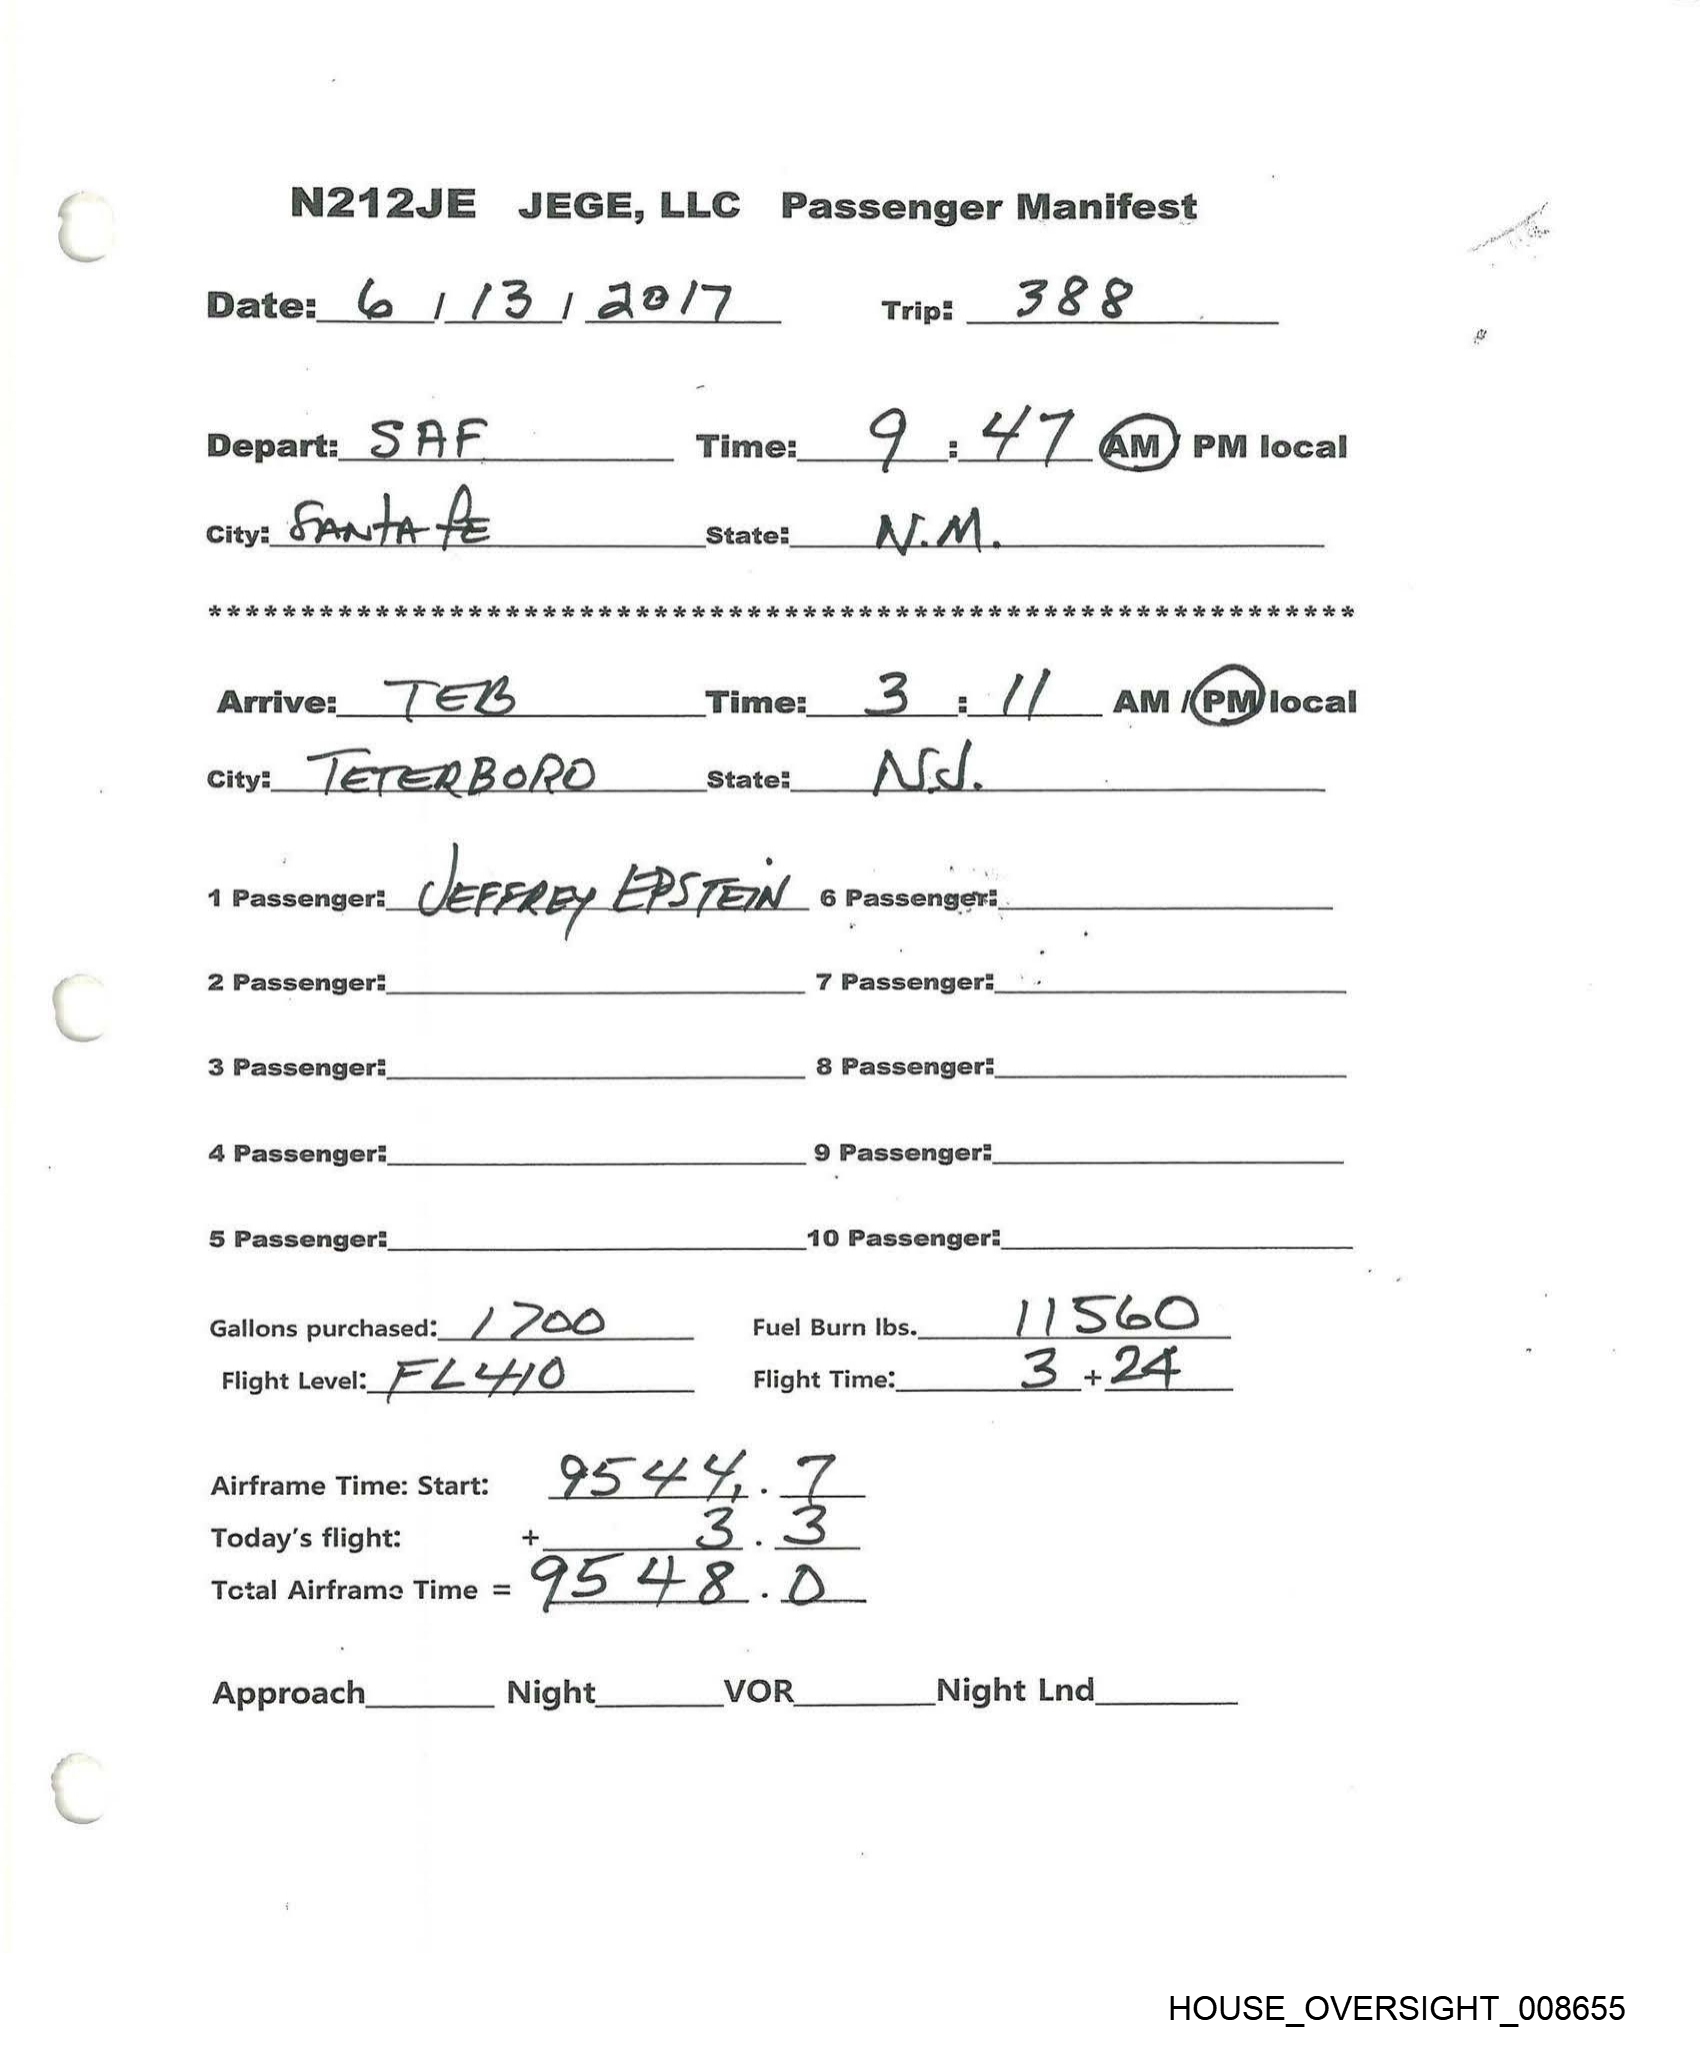 N212JE JEGE, LLC Passenger Manifest
Date: 6 / 13 / 2017 Trip: 388
Depart: SAF Time: 9 : 47 AM / PM local
City: SANTA FE State: N.M.
**************************************************************
Arrive: TEB Time: 3 : 11 AM / PM local
City: TETERBORO State: N.J.
1 Passenger: JEFFREY EPSTEIN 6 Passenger:
2 Passenger: 7 Passenger:
3 Passenger: 8 Passenger:
4 Passenger: 9 Passenger:
5 Passenger: 10 Passenger:
Gallons purchased: 1700 Fuel Burn lbs. 11560
Flight Level: FL410 Flight Time: 3 + 24
Airframe Time: Start: 9544 . 7
Today's flight: + 3 . 3
Total Airframe Time = 9548 . 0
Approach Night VOR Night Lnd
HOUSE_OVERSIGHT_008655